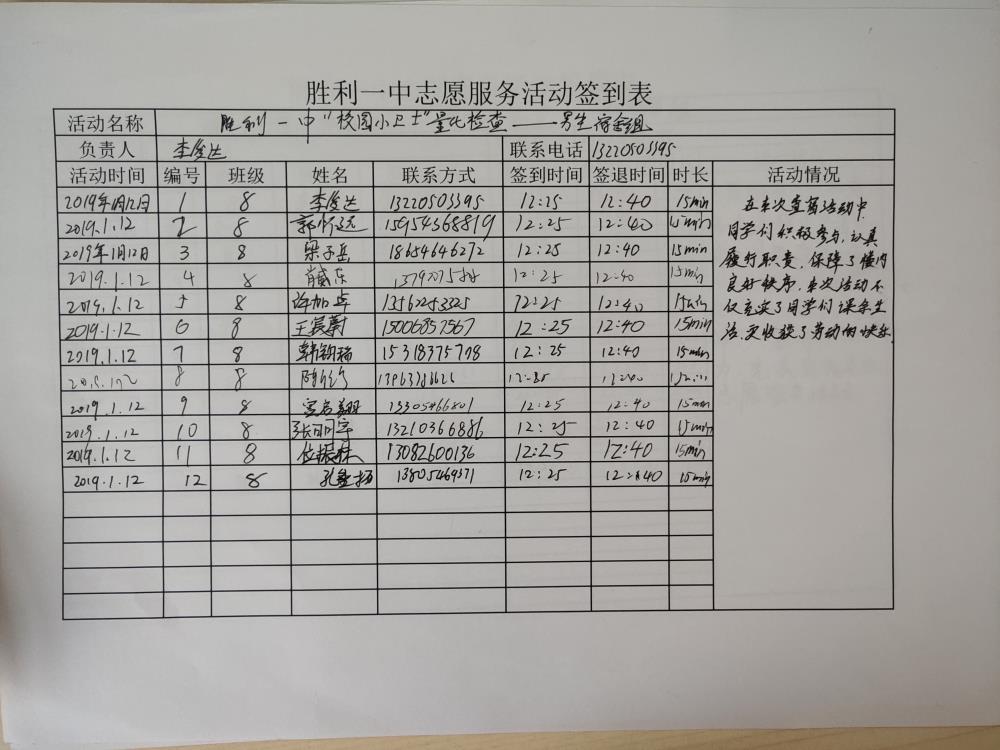 胜利一中志愿服务活动签到表
活动名称 胜利一中“校园小卫士”量化检查——男生宿舍组
负责人 李俊达 联系电话 13220503395
活动时间 编号 班级 姓名 联系方式 签到时间 签退时间 时长 活动情况
2019年1月12日 1 8 李俊达 13220503395 12:25 12:40 15min
2019.1.12 2 8 15954368819 12:25 12:40 15min
2019年1月12日 3 8 梁子岳 18654646272 12:25 12:40 15min
2019.1.12 4 8 12:25 12:40 15min
2019.1.12 5 8 许加卓 13562453325 12:25 12:40 15min
2019.1.12 6 8 15006857567 12:25 12:40 15min
2019.1.12 7 8 15318375708 12:25 12:40 15min
8 8 12:25 12:40
2019.1.12 9 8 13305466801 12:25 12:40 15min
2019.1.12 10 8 13210366886 12:25 12:40 15min
2019.1.12 11 8 位振林 13082600136 12:25 12:40 15min
2019.1.12 12 8 13805469371 12:25 12:40 15min
在本次查寝活动中
同学们积极参与,认真
履行职责,保障了楼内
良好秩序,本次活动不
仅充实了同学们课余生
活,更收获了劳动的快乐.